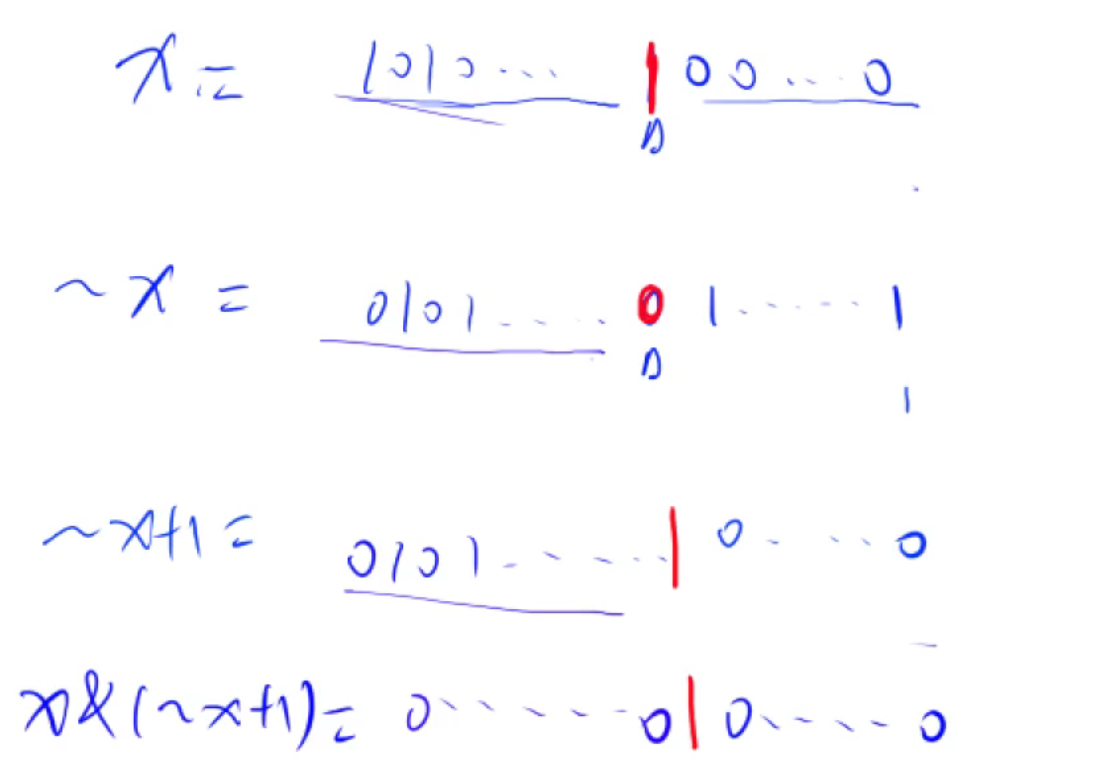 x = 1010... 1 00...0
~x = 0101..... 0 1......1
1
~x+1 = 0101...... 1 0.....0
x&(~x+1) = 0......0 1 0.....0